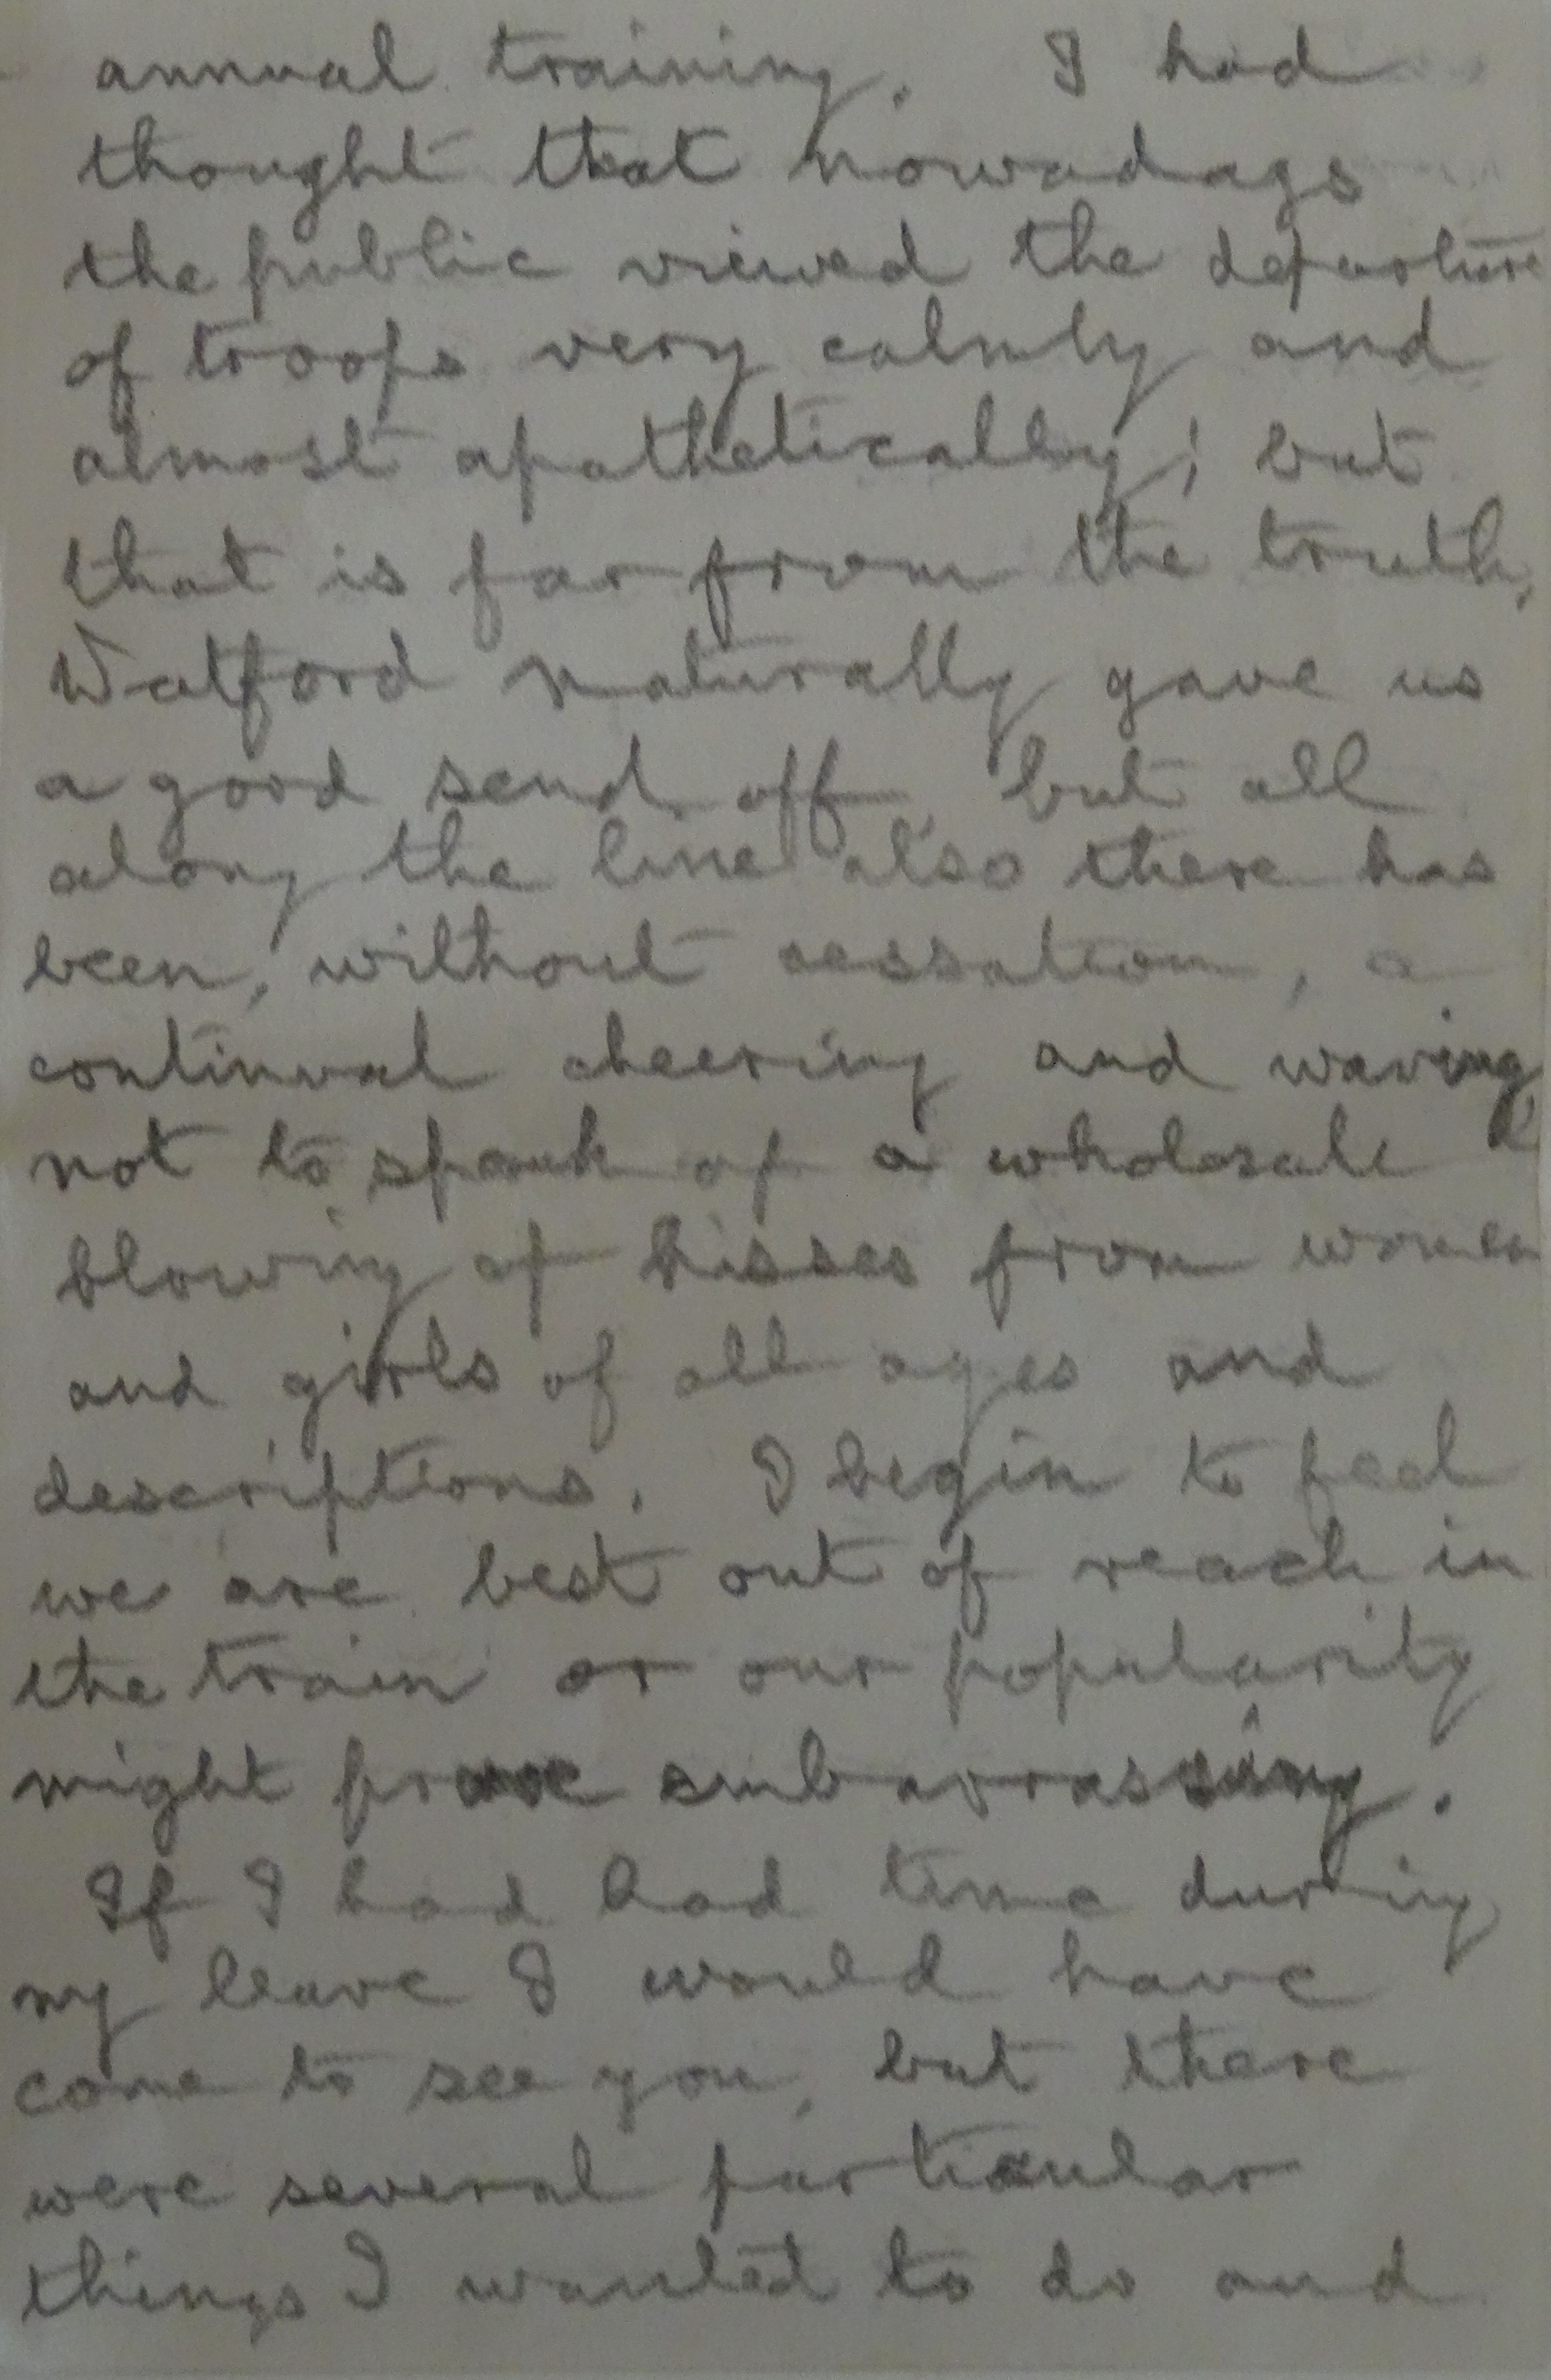 annual training. I had
thought that nowadays
the public viewed the departure
of troops very calmly and
almost apathetically; but
that is far from the truth,
Watford naturally gave us
a good send off, but all
along the line also there has
been, without cessation, a
continual cheering and waving,
not to speak of a wholesale
blowing of kisses from women
and girls of all ages and
descriptions. I begin to feel
we are best out of reach in
the train or our popularity
might prove embarrassing.
If I had had time during
my leave I would have
come to see you, but there
were several particular
things I wanted to do and